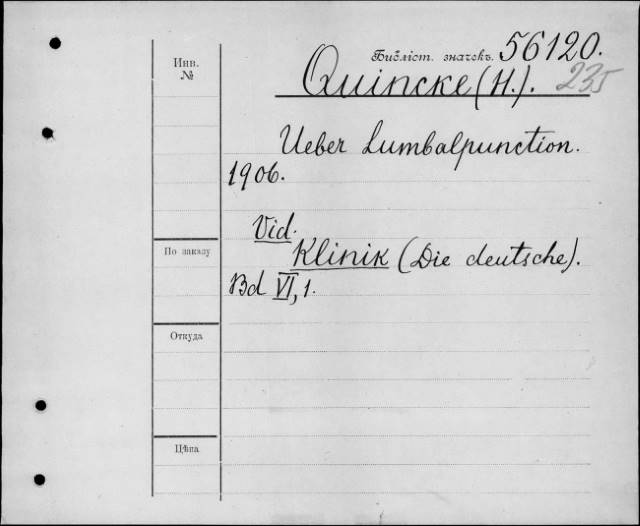 Инв.
№
Бібліот. значекъ. 56120.
Quincke (H.). 235
Ueber Lumbalpunction.
1906.
Vid.
Klinik (Die deutsche).
Bd VI, 1.
По заказу
Откуда
Цѣна